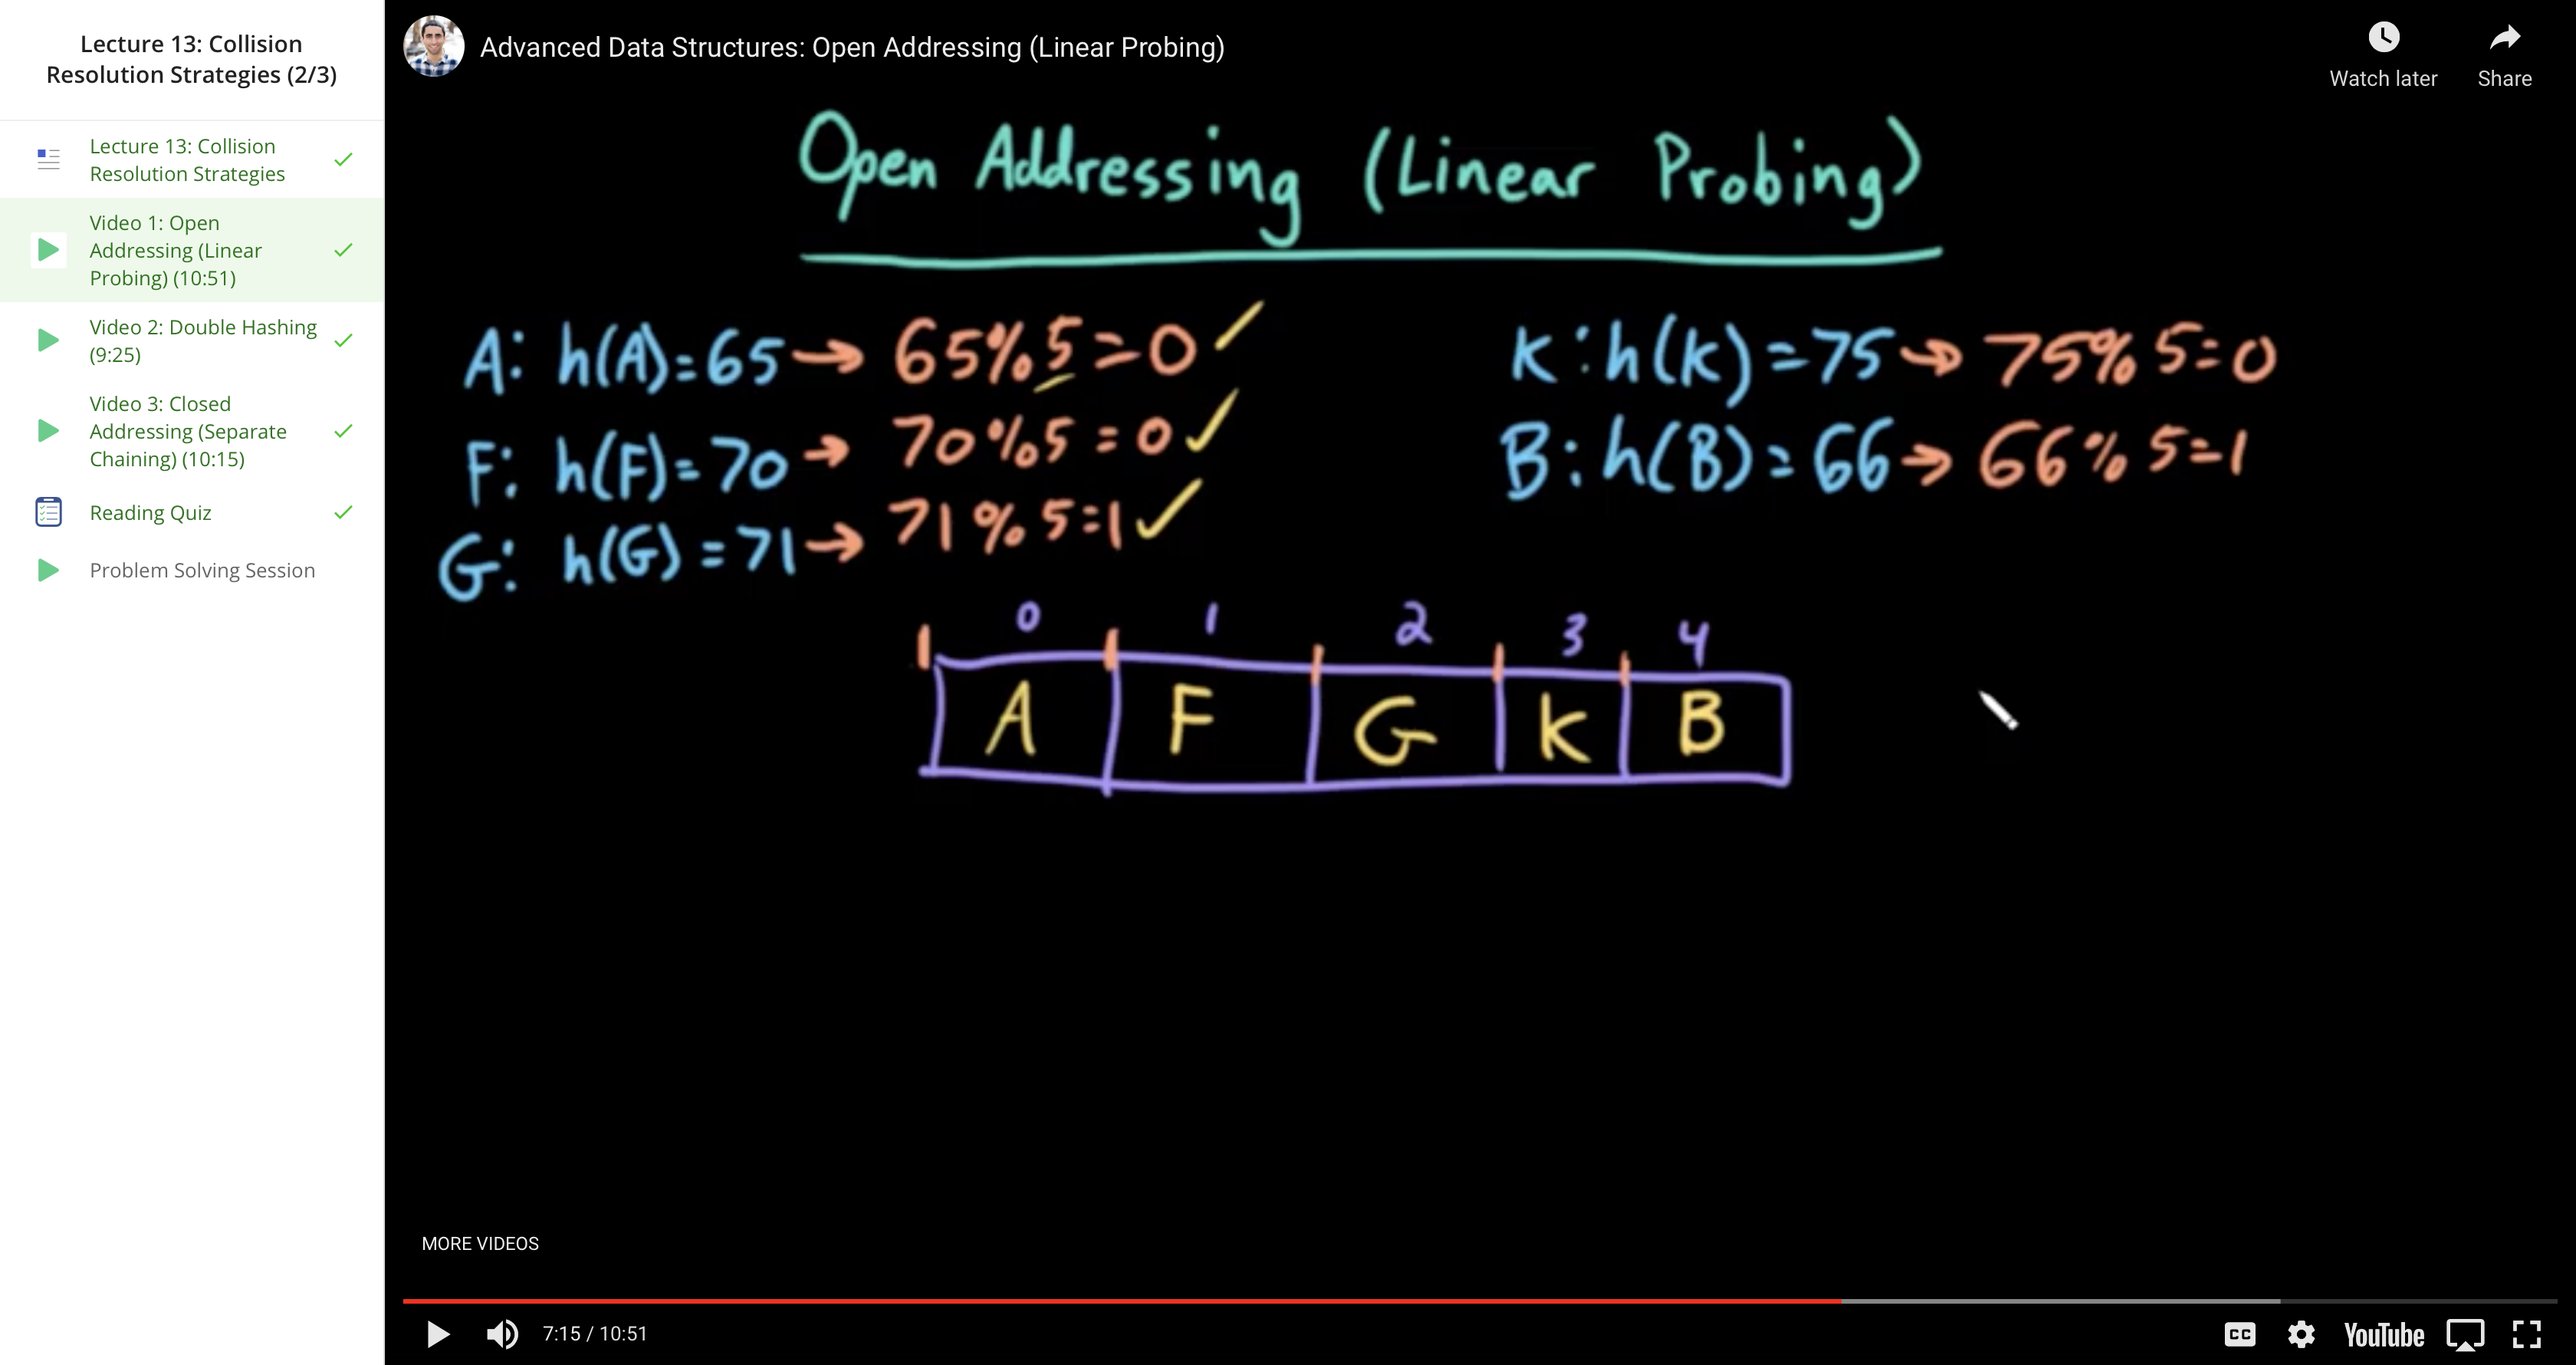 Lecture 13: Collision
Resolution Strategies (2/3)
Lecture 13: Collision
Resolution Strategies
Video 1: Open
Addressing (Linear
Probing) (10:51)
Video 2: Double Hashing
(9:25)
Video 3: Closed
Addressing (Separate
Chaining) (10:15)
Reading Quiz
Problem Solving Session
Advanced Data Structures: Open Addressing (Linear Probing)
Watch later
Share
Open Addressing (Linear Probing)
A: h(A)=65→ 65%5=0 ✓
F: h(F)=70→ 70%5=0 ✓
G: h(G)=71→ 71%5=1 ✓
K:h(K)=75→75%5=0
B:h(B)=66→66%5=1
0 1 2 3 4
A F G K B
MORE VIDEOS
7:15 / 10:51
CC
YouTube